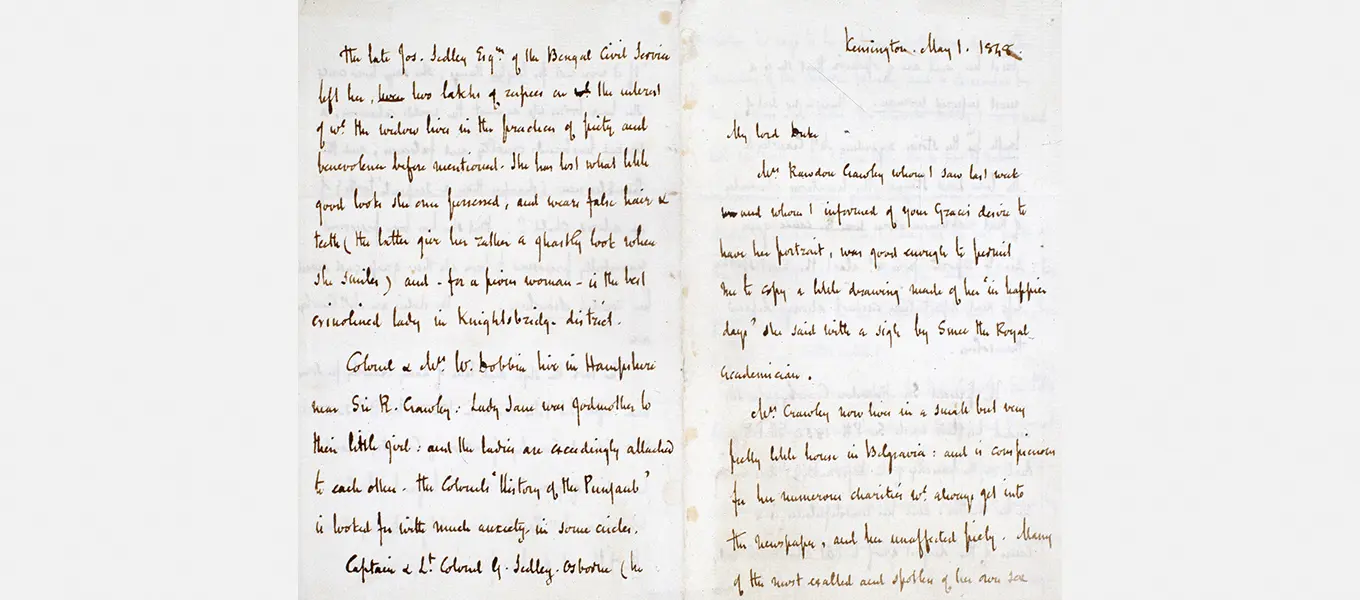 The late Jos. Sedley Esqre of the Bengal Civil Service
left her, two lakhs of rupees on the interest
of wh the widow lives in the practices of piety and
benevolence before mentioned. She has lost what little
good looks she once possessed, and wears false hair &
teeth (the latter give her rather a ghastly look when
she smiles) and - for a pious woman - is the best
crinolined lady in Knightsbridge district.
Colonel & Mrs W. Dobbin live in Hampshire
near Sir R. Crawley: Lady Jane was godmother to
their little girl: and the ladies are exceedingly attached
to each other. The Colonels "History of the Punjaub"
is looked for with much anxiety in some circles.
Captain & Lt Colonel G. Sedley-Osborne (he
Kensington. May 1. 1848.
My lord Duke
Mrs Rawdon Crawley whom I saw last week
and whom I informed of your Graces desire to
have her portrait, was good enough to permit
me to copy a little drawing made of her "in happier
days" she said with a sigh by Smee the Royal
Academician.
Mrs Crawley now lives in a small but very
pretty little house in Belgravia: and is conspicuous
for her numerous charities wh always get into
the newspapers, and her unaffected piety. Many
of the most exalted and spotless of her own sex